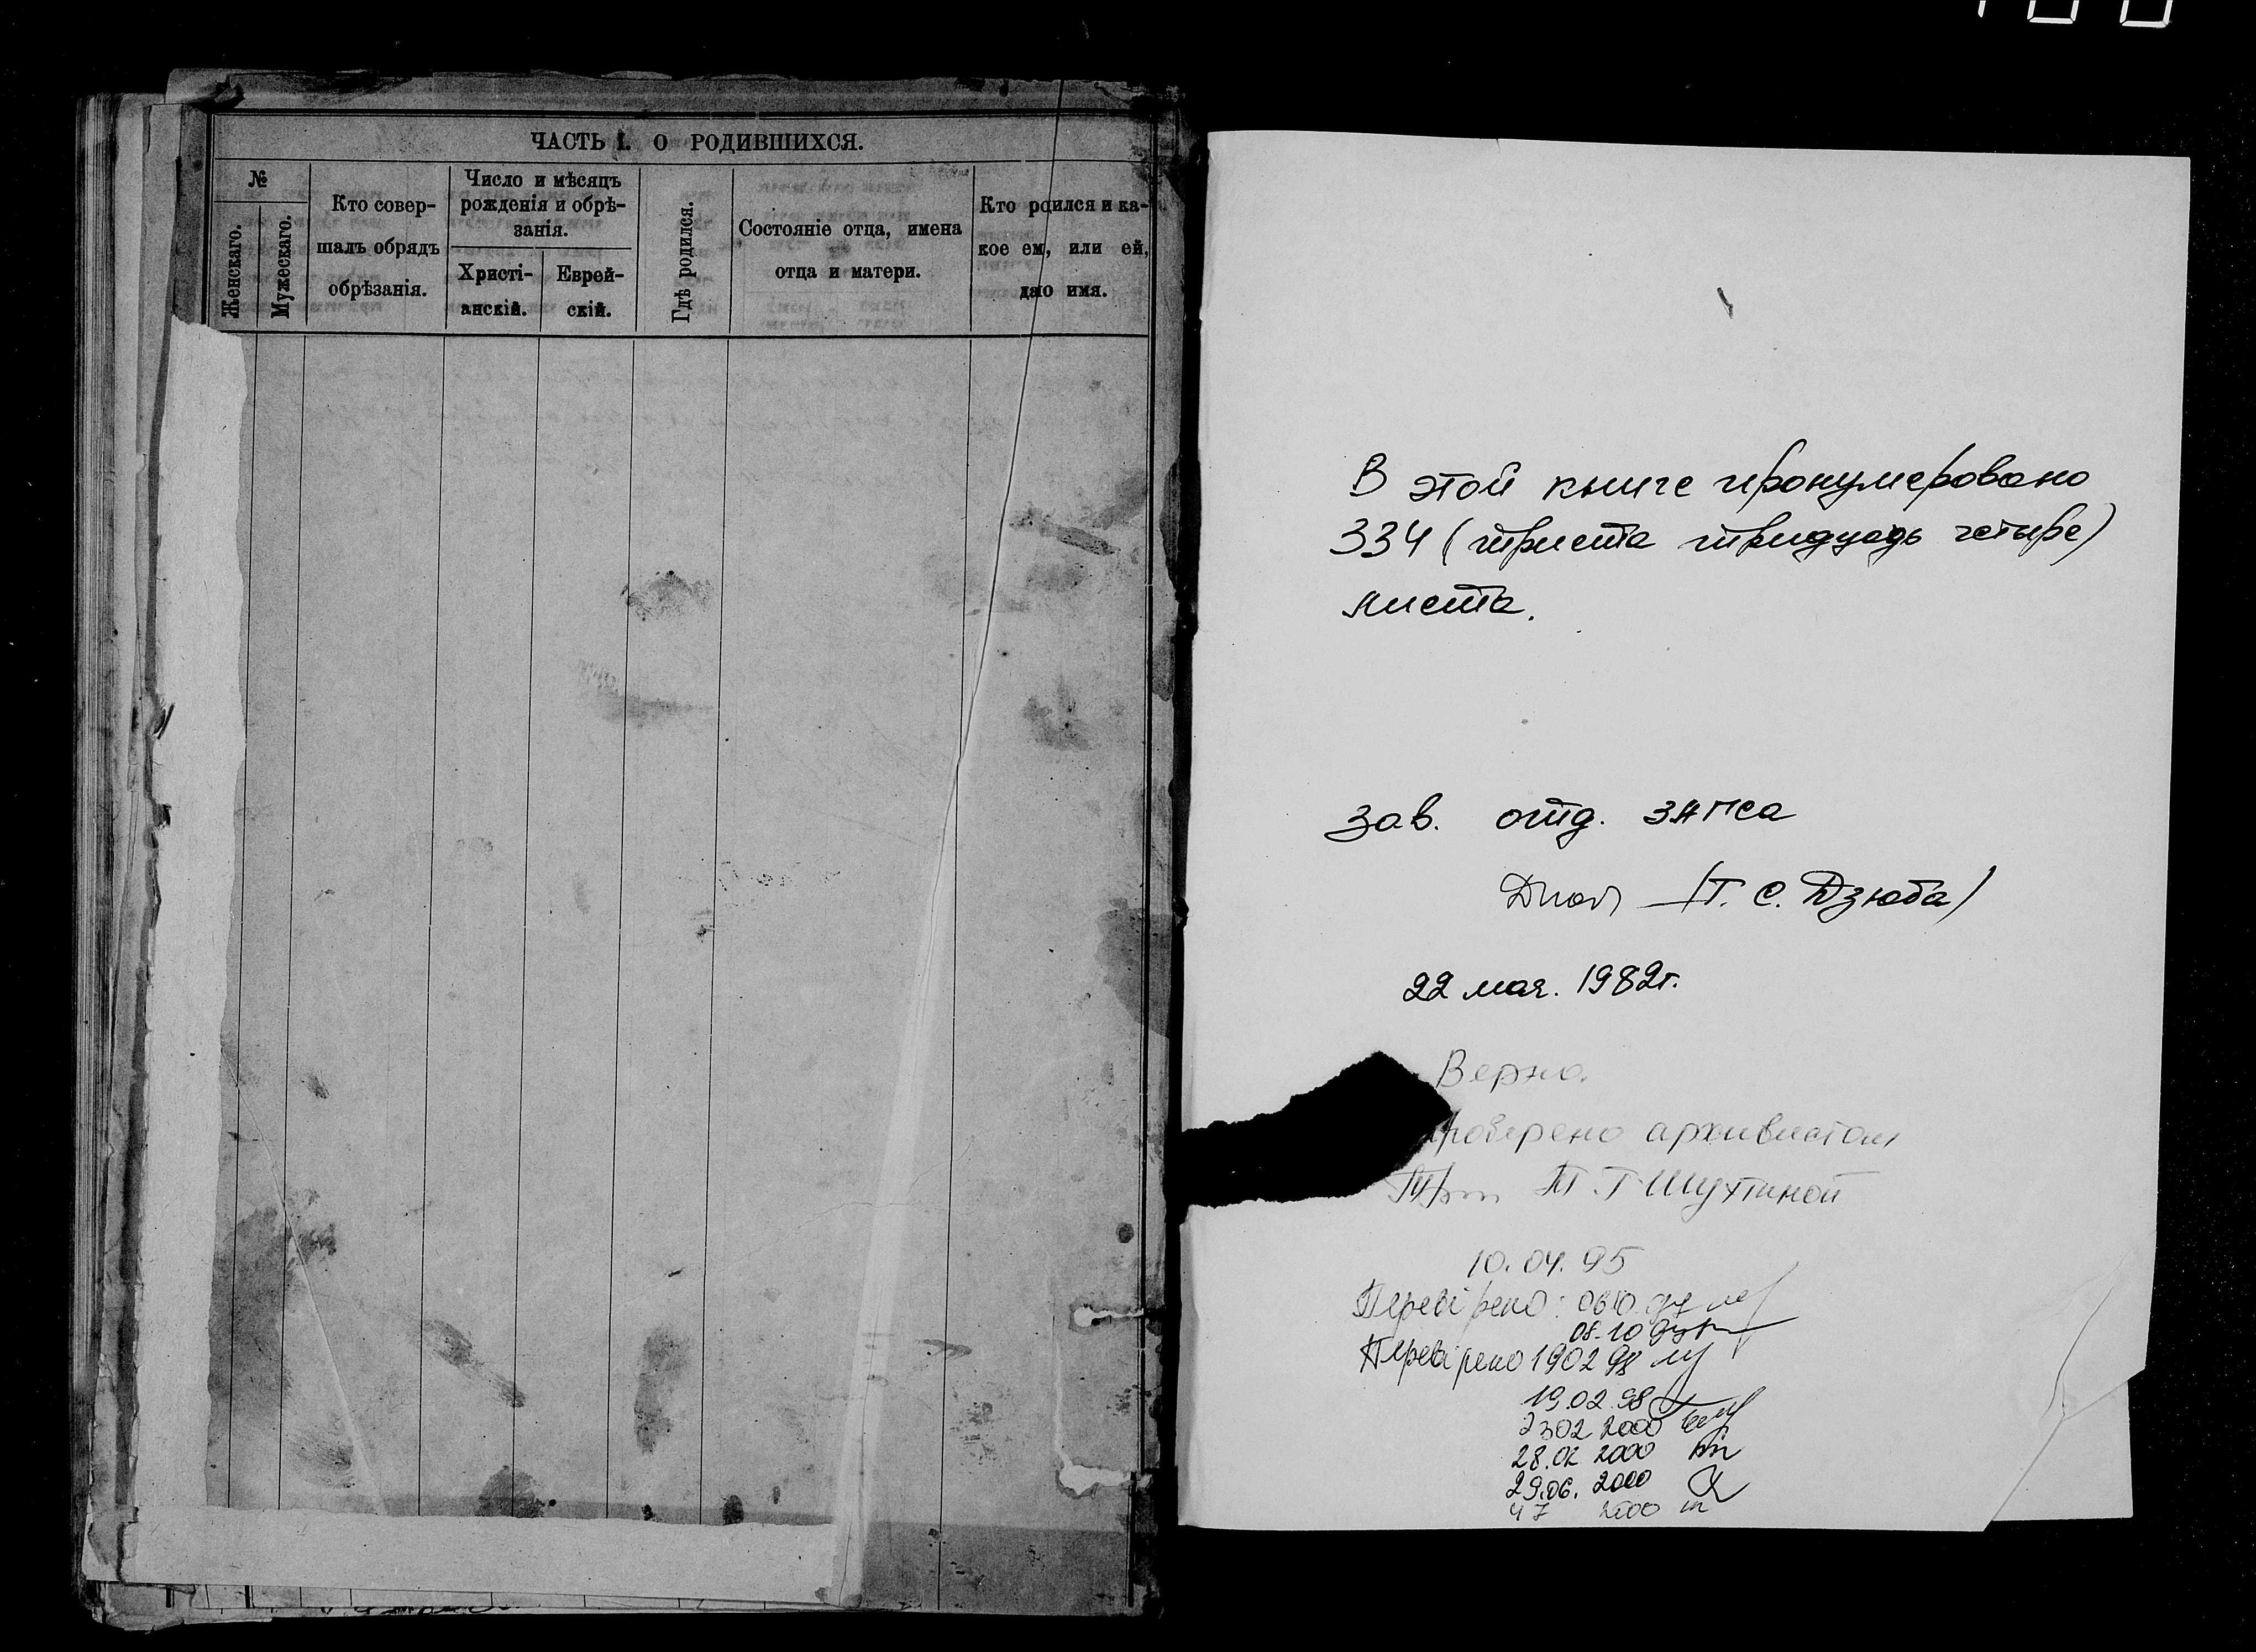 ЧАСТЬ I. О РОДИВШИХСЯ.
№
Женскаго.
Мужескаго.
Кто совер-
шалъ обрядъ
обрѣзанія.
Число и мѣсяцъ
рожденія и обрѣ-
занія.
Христі-
анскій.
Еврей-
скій.
Гдѣ родился.
Состояніе отца, имена
отца и матери.
Кто родился и ка-
кое ему, или ей,
дано имя.
В этой книге пронумеровано
334 (триста тридцадь четыре)
листа.
Зав. отд. загса
(Т. С. Дзюба)
22 мая. 1982г.
Верно.
проверено архивистом
М. Т Шухтиной
10.04.95
Перевірено:
08.10
Перевірено 1902 98
19.02.98
2302 2000
28.02 2000
29.06. 2000
4 7 2000